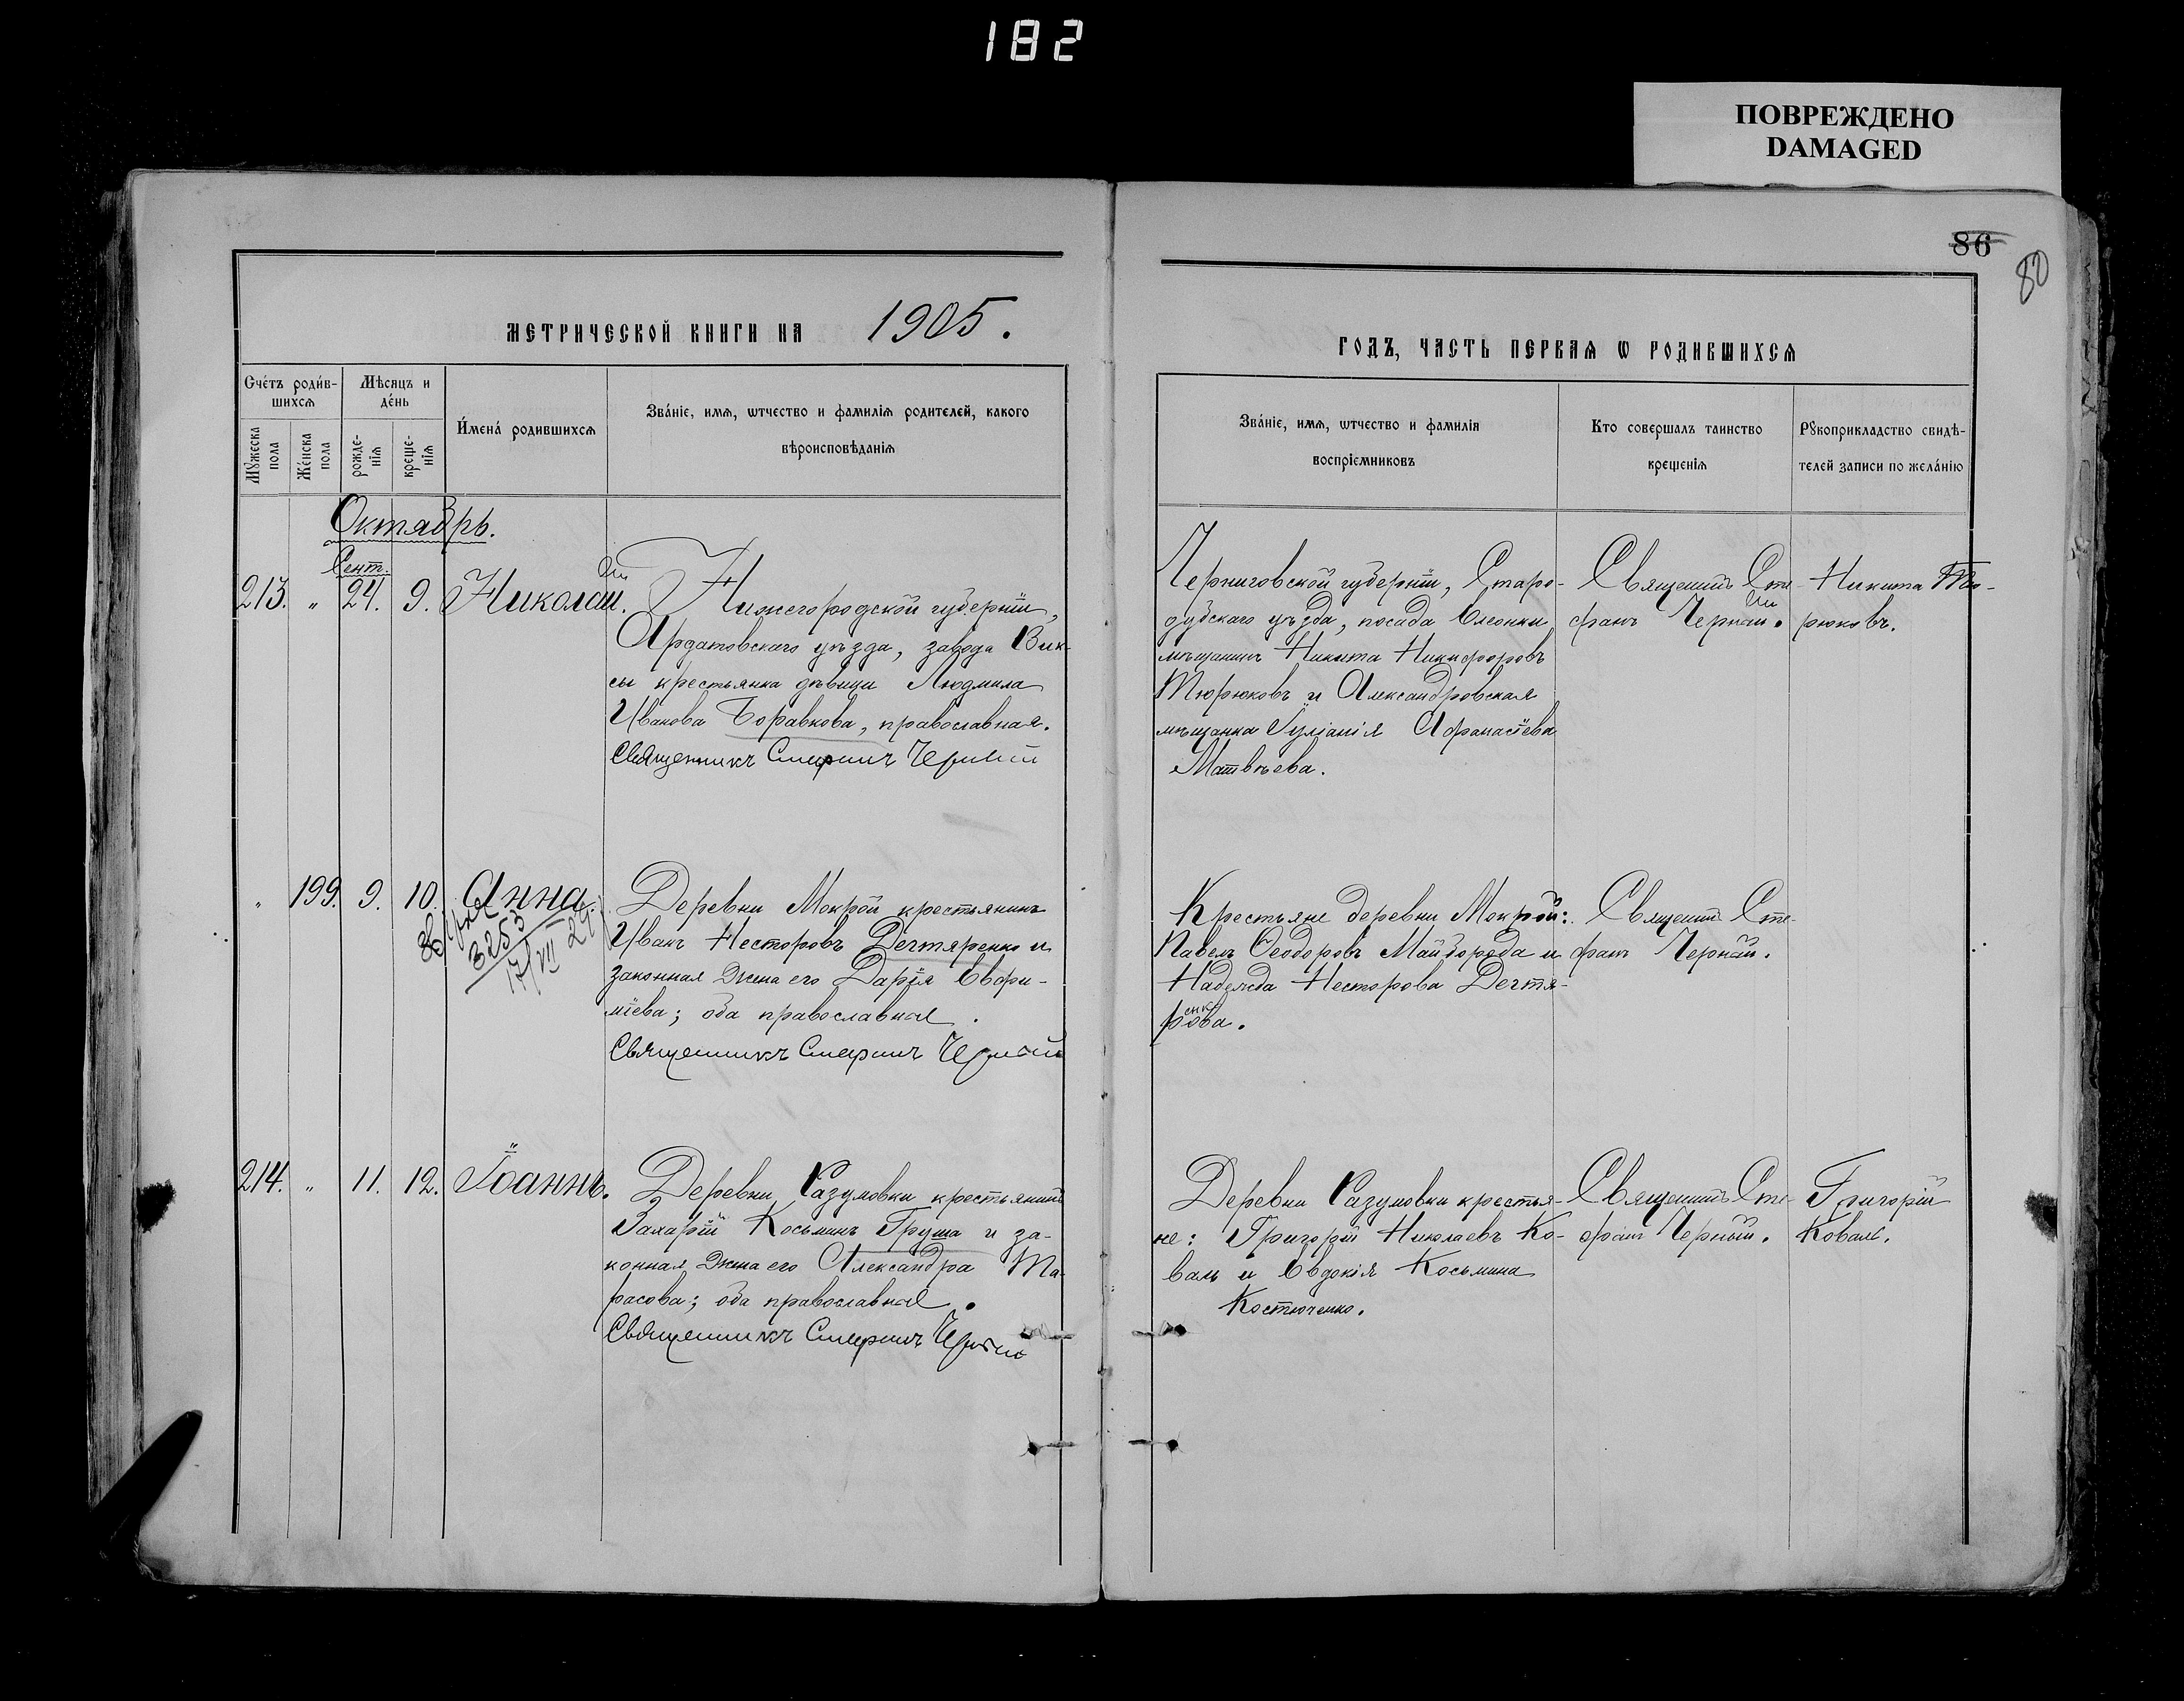 182
ПОВРЕЖДЕНО
DAMAGED
86
80
МЕТРИЧЕСКОЙ КНИГИ НА 1905.
ГОДЪ, ЧАСТЬ ПЕРВАѦ Ѡ РОДИВШИХСѦ
Сче́тъ роди́в-
шихсѧ
Мꙋжеска
пола
Же́нска
пола
Мѣ́сѧцъ и
де́нь
рожде-
нїѧ
креще-
нїѧ
И́мена́ родившихсѧ
Зва́нїе, имѧ, ѡтчество и фамилїѧ родителей, какого
вѣроисповѣданїѧ
Зва́нїе, имѧ, ѡтчество и фамилїѧ
воспрїемниковъ
Кто совершалъ таинство
крещенїѧ
Рꙋкоприкладство свидѣ-
телей записи по жела́нїю
Октябрь.
Сент.
213. " 24. 9. Николай.
Нижегородской губерніи,
Ардатовскаго уѣзда, завода Вик-
сы крестьянка дѣвица Людмила
Иванова Боравкова, православная.
Священникъ Стефанъ Черный
Черниговской губерніи, Старо-
дубскаго уѣзда, посада Клеонки
мѣщанинъ Никита Никифоровъ
Тюрюковъ и Александровская
мѣщанка Іуліанія Афанасіева
Матвѣева.
Священникъ Сте-
фанъ Черный.
Никита Тю-
рюковъ.
" 199. 9. 10. Анна.
3253
17/VII 29
Деревни Мокрой крестьянинъ
Иванъ Несторовъ Дегтяренко и
законная жена его Дарія Евфи-
міева; оба православные.
Священникъ Стефанъ Черный
Крестьяне деревни Мокрой:
Павелъ Ѳеодоровъ Майборода и
Надежда Несторова Дегтя-
енко
рова.
Священникъ Сте-
фанъ Черный.
214. " 11. 12. Іоаннъ.
Деревни Разумовки крестьянинъ
Захарій Косьминъ Груша и за-
конная жена его Александра Та-
расова; оба православные.
Священникъ Стефанъ Черный
Деревни Разумовки крестья-
не: Григорій Николаевъ Ко-
валь и Евдокія Косьмина
Костюченко.
Священникъ Сте-
фанъ Черный.
Григорій
Коваль.